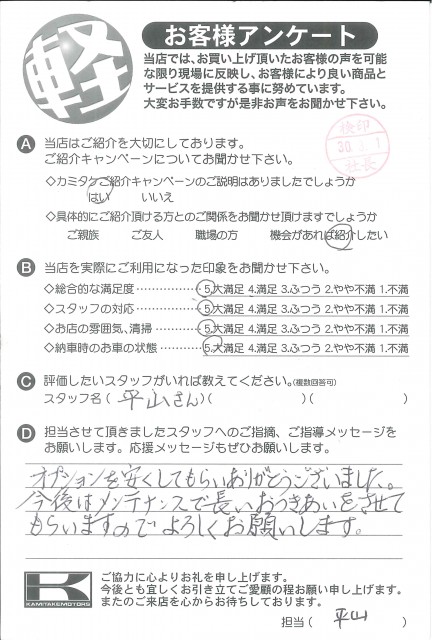 軽
お客様アンケート
当店では、お買い上げ頂いたお客様の声を可能
な限り現場に反映し、お客様により良い商品と
サービスを提供する事に努めています。
大変お手数ですが是非お声をお聞かせ下さい。
検印
30.
社長
A 当店はご紹介を大切にしております。
ご紹介キャンペーンについてお聞かせ下さい。
◇カミタケご紹介キャンペーンのご説明はありましたでしょうか
はい いいえ
◇具体的にご紹介頂ける方とのご関係をお聞かせ頂けますでしょうか
ご親族 ご友人 職場の方 機会があれば紹介したい
B 当店を実際にご利用になった印象をお聞かせ下さい。
◇総合的な満足度……………5.大満足 4.満足 3.ふつう 2.やや不満 1.不満
◇スタッフの対応……………5.大満足 4.満足 3.ふつう 2.やや不満 1.不満
◇お店の雰囲気、清掃………5.大満足 4.満足 3.ふつう 2.やや不満 1.不満
◇納車時のお車の状態………5.大満足 4.満足 3.ふつう 2.やや不満 1.不満
C 評価したいスタッフがいれば教えてください。(複数回答可)
スタッフ名(平山さん)( )( )
D 担当させて頂きましたスタッフへのご指摘、ご指導メッセージを
お願いします。応援メッセージもぜひお願いします。
オプションを安くしてもらいありがとうございました。
今後はメンテナンスで長いおつきあいをさせて
もらいますのでよろしくお願いします。
K
KAMITAKEMOTORS
ご協力に心よりお礼を申し上げます。
今後とも宜しくお引き立てご愛顧の程お願い申し上げます。
またのご来店を心からお待ちしております。
担当(平山)